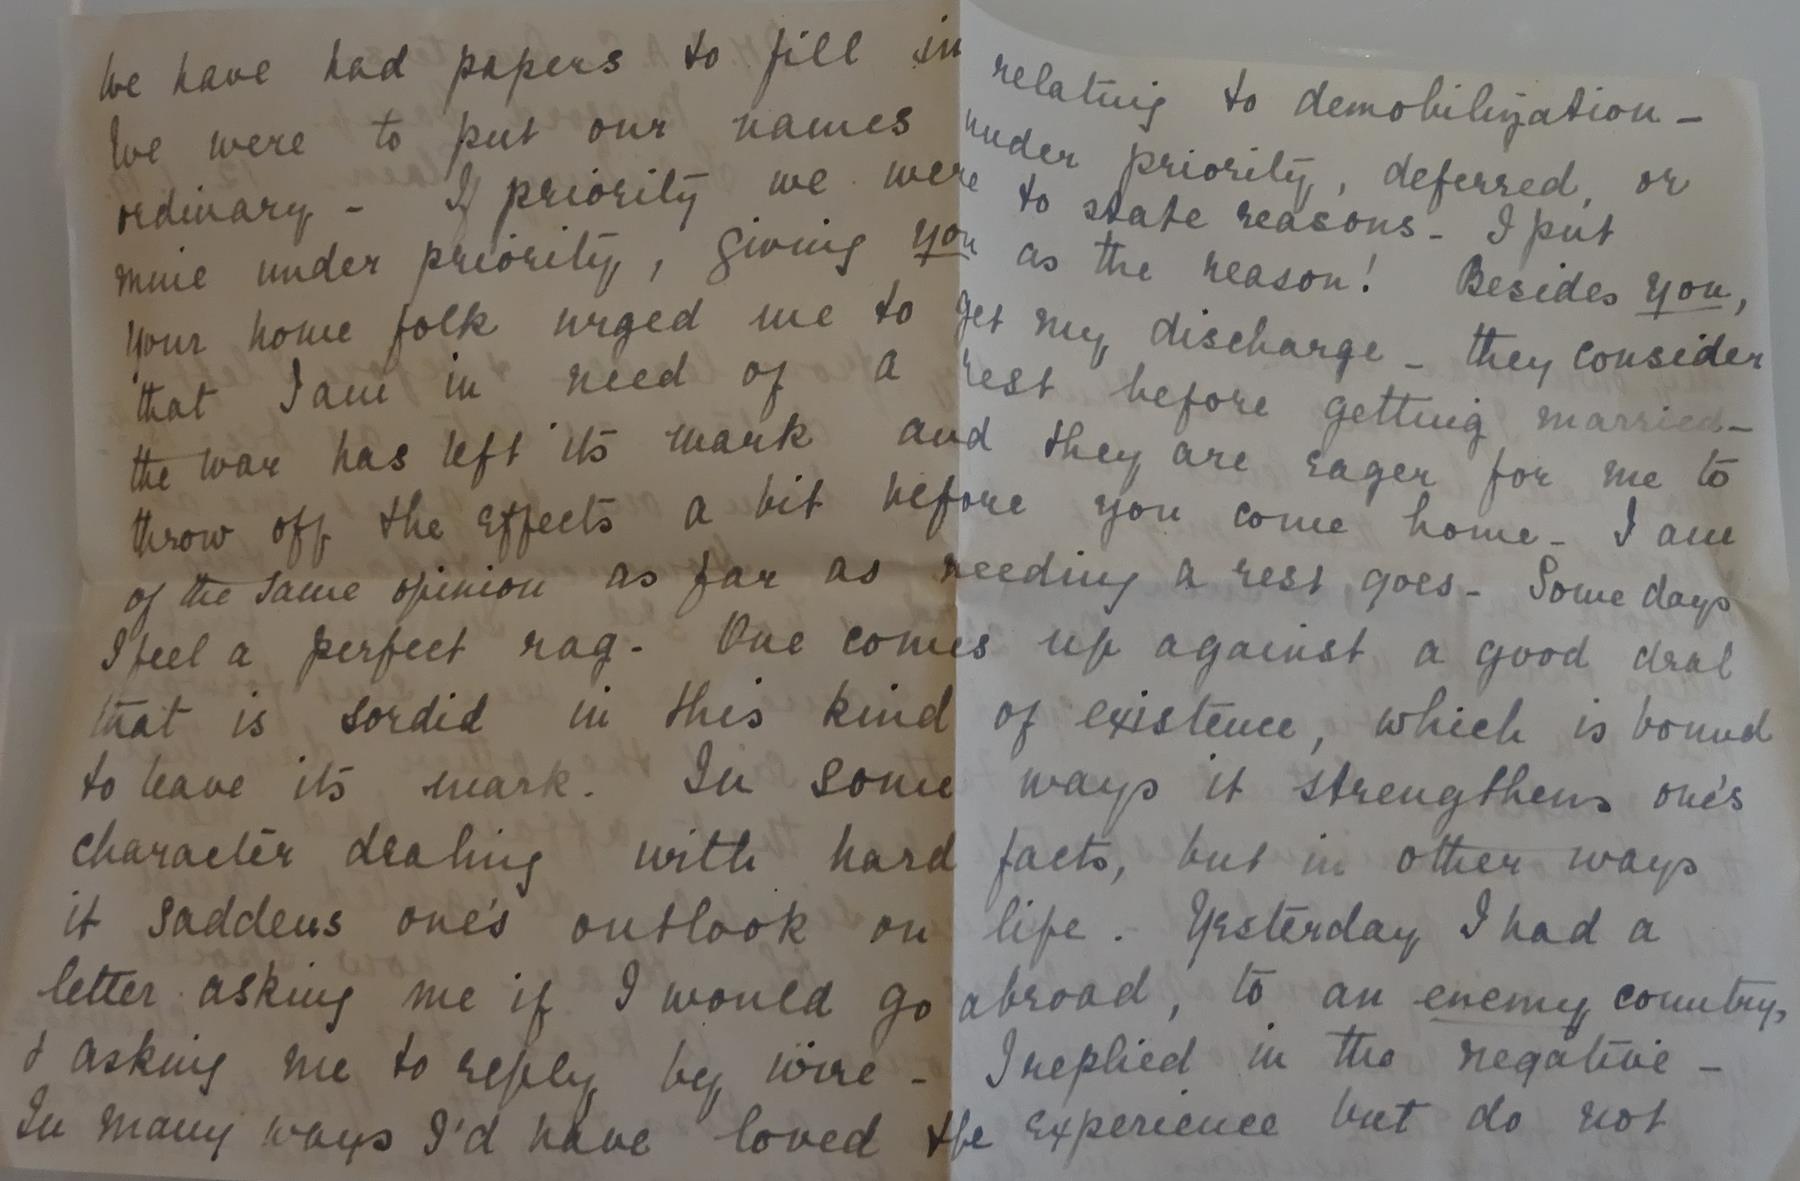 We have had papers to fill in relating to demobilization -
We were to put our names under priority, deferred, or
ordinary - If priority we were to state reasons - I put
mine under priority, giving you as the reason! Besides you,
your home folk urged me to get my discharge - they consider
that I am in need of a rest before getting married -
the war has left its mark and they are eager for me to
throw off the effects a bit before you come home - I am
of the same opinion as far as needing a rest goes - Some days
I feel a perfect rag - One comes up against a good deal
that is sordid in this kind of existence, which is bound
to leave its mark. In some ways it strengthens one's
character dealing with hard facts, but in other ways
it saddens one's outlook on life. Yesterday I had a
letter asking me if I would go abroad, to an enemy country,
& asking me to reply by wire - I replied in the negative -
In many ways I'd have loved the experience but do not